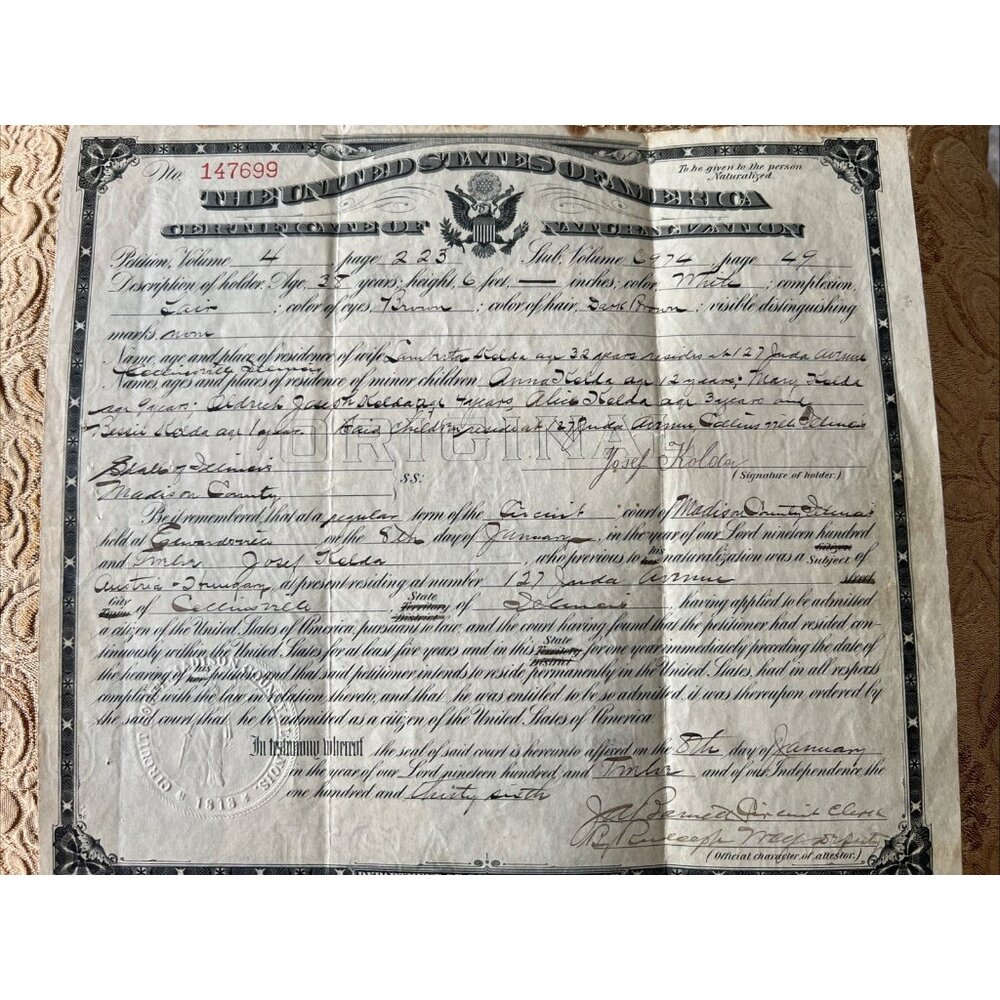 No. 147699
To be given to the person Naturalized.
THE UNITED STATES OF AMERICA
CERTIFICATE OF NATURALIZATION
Petition, Volume 4 page 223 Stub, Volume 6974, page 49
Description of holder, Age, 38 years; height, 6 feet, — inches; color, White; complexion,
Fair; color of eyes, Brown; color of hair, Dark Brown; visible distinguishing
marks, none
Name, age and place of residence of wife Lamberta Kolda age 32 years resides at 127 Juda Avenue
Collinsville Illinois
Names, ages and places of residence of minor children Anna Kolda age 12 years; Mary Kolda
age 9 years; Oldrich Joseph Kolda age 4 years, Alice Kolda age 3 years and
Bessie Kolda age 1 year. Said children reside at 127 Juda Avenue, Collinsville Illinois
ORIGINAL
Josef Kolda
(Signature of holder.)
State of Illinois
Madison County } SS:
Be it remembered, that at a regular term of the Circuit court of Madison County Illinois
held at Edwardsville on the 8th day of January, in the year of our Lord nineteen hundred
and Twelve Josef Kolda, who previous to his naturalization was a Subject of
Austria-Hungary, at present residing at number 127 Juda Avenue street
City Town of Collinsville, State Territory District of Illinois, having applied to be admitted
a citizen of the United States of America, pursuant to law, and the court having found that the petitioner had resided con-
tinuously within the United States for at least five years and in this State Territory District for one year immediately preceding the date of
the hearing of his petition and that said petitioner intends to reside permanently in the United States, had in all respects
complied with the law in relation thereto, and that he was entitled to be so admitted, it was thereupon ordered by
the said court, that he be admitted as a citizen of the United States of America.
In testimony whereof the seal of said court is hereunto affixed on the 8th day of January
in the year of our Lord nineteen hundred and Twelve and of our Independence the
one hundred and thirty sixth
Circuit Clerk
By Deputy
(Official character of attestor.)
CIRCUIT MADISON COUNTY 1818